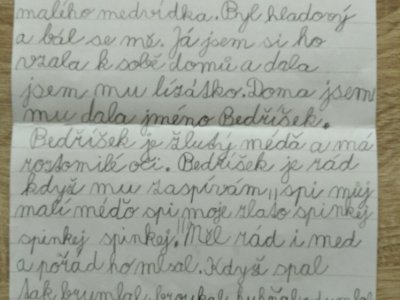 malího medvídka. Byl hladový
a bál se mě. Já jsem si ho
vzala k sobě domů a dala
jsem mu lízátko. Doma jsem
mu dala jméno Bedříšek.
Bedříšek je žlutý méďa a má
roztomilé oči. Bedříšek je rád
když mu zaspívám,, spi můj
malí méďo spi moje zlato spinkej
spinkej spinkej." Měl rád i med
a pořád ho mlsal. Když spal
tak brumlal,